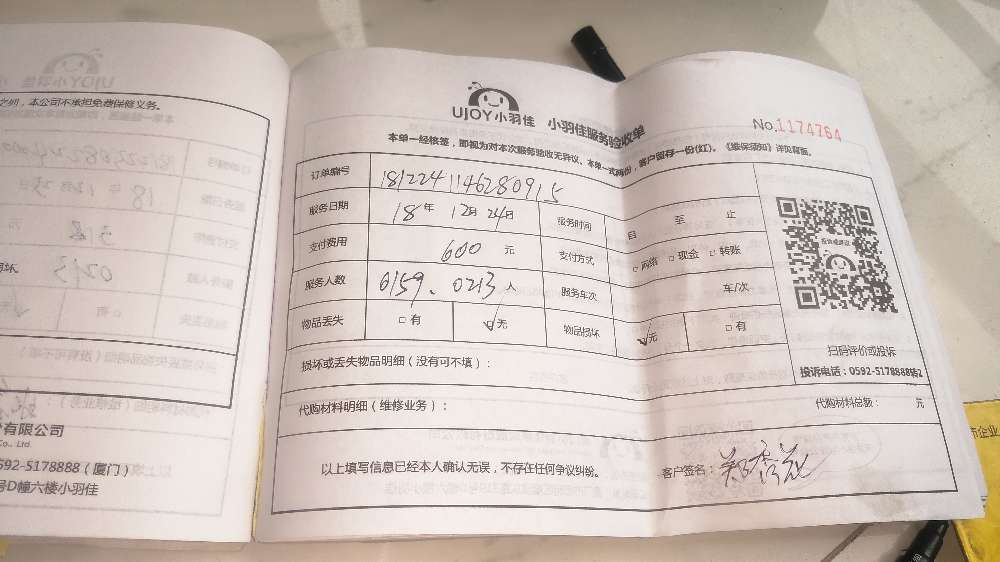 之期，本公司不承担免费保修义务。
有限公司
Co., Ltd.
592-5178888（厦门）
号D幢六楼小羽佳
UJOY小羽佳 小羽佳服务验收单
No.1174764
本单一经核签，即视为对本次服务验收无异议。本单一式两份，客户留存一份(红)。《维保须知》详见背面。
订单编号 181224114628091 5
服务日期 18年 12月 24日 服务时间 自 至 止
支付费用 600 元 支付方式 □网络 □现金 □转账
服务人数 0159、0213 人 服务车次 车/次
物品丢失 □有 ☑无 物品损坏 ☑无 □有
损坏或丢失物品明细（没有可不填）：
代购材料明细（维修业务）： 代购材料总额： 元
以上填写信息已经本人确认无误，不存在任何争议纠纷。 客户签名：
投诉或建议
扫码评价或投诉
投诉电话：0592-5178888转2
市企业